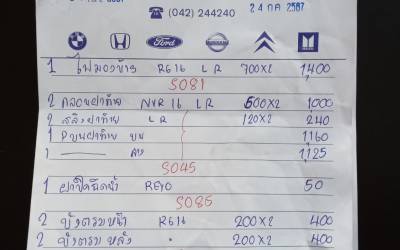 ☎ (042) 244240
24 กค 2567
Ford
1 ไฟมองข้าง RG16 LR 700x2 1,400
S081
2 กลอนฝาท้าย NVR 16 LR 500x2 1,000
2 สลิงฝาท้าย LR 120x2 240
1 บนฝาท้าย บน 1,160
1 —— ล่าง 1,125
S045
1 ฝาปิดฉีดน้ำ RE10 50
S085
2 บังตรมหน้า RG16 200x2 400
2 บังตรม หลัง " 200x2 400